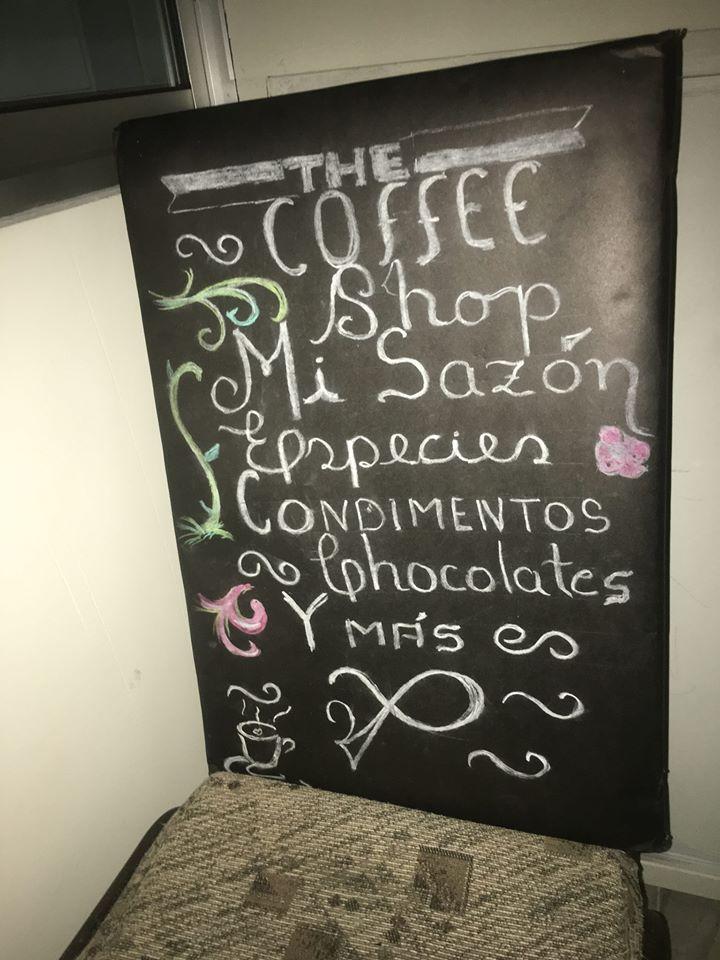 THE
COFFEE
Shop
Mi Sazón
Especies
CONDIMENTOS
Chocolates
Y MÁS